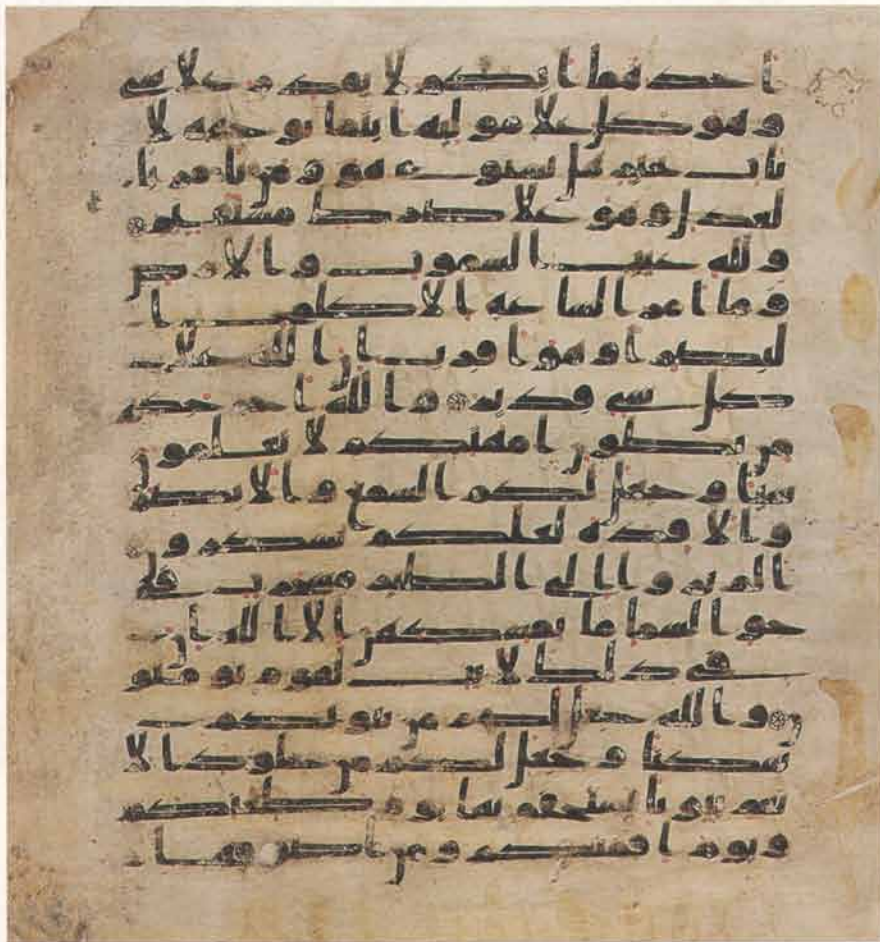 احدهما ابكم لا يقدر على شى
وهو كل على موليه اينما يوجهه لا
يات بخير هل يستوى هو ومن يامر با
لعدل وهو على صرط مستقيم
ولله غيب السموت والارض
وما امر الساعه الا كلمح ا
لبصر او هو اقرب ان الله على
كل شى قدير والله اخرجكم
من بطون امهتكم لا تعلمون
شيا وجعل لكم السمع والابصر
والافده لعلكم تشكرون
الم يروا الى الطير مسخرت فى
جو السما ما يمسكهن الا الله ان
فى ذلك لايت لقوم يومنو
ن والله جعل لكم من بيوتكم
سكنا وجعل لكم من جلود الا
نعم بيوتا تستخفونها يوم ظعنكم
ويوم اقمتكم ومن اصوفها